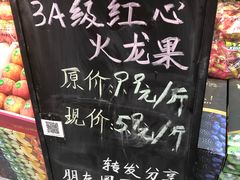 3A级红心
火龙果
原价:9.9元/斤
现价:5.9元/斤
转发分享
朋友圈